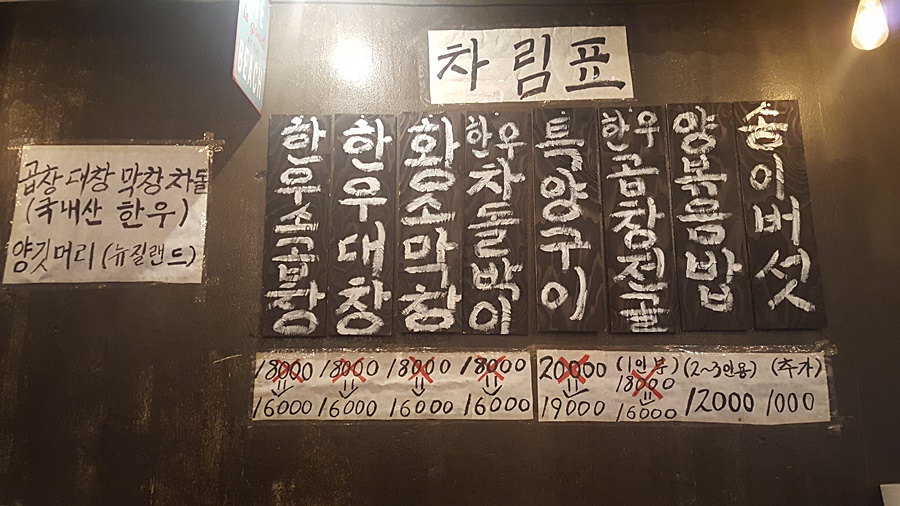 차림표
곱창 대창 막창 차돌
(국내산 한우)
양깃머리 (뉴질랜드)
한우소곱창
한우대창
황소막창
한우차돌박이
특양구이
한우곱창전골
양볶음밥
송이버섯
18000 18000 18000 18000
16000 16000 16000 16000
20000 (1인분) (2~3인용) (추가)
18000
19000 16000 12000 1000